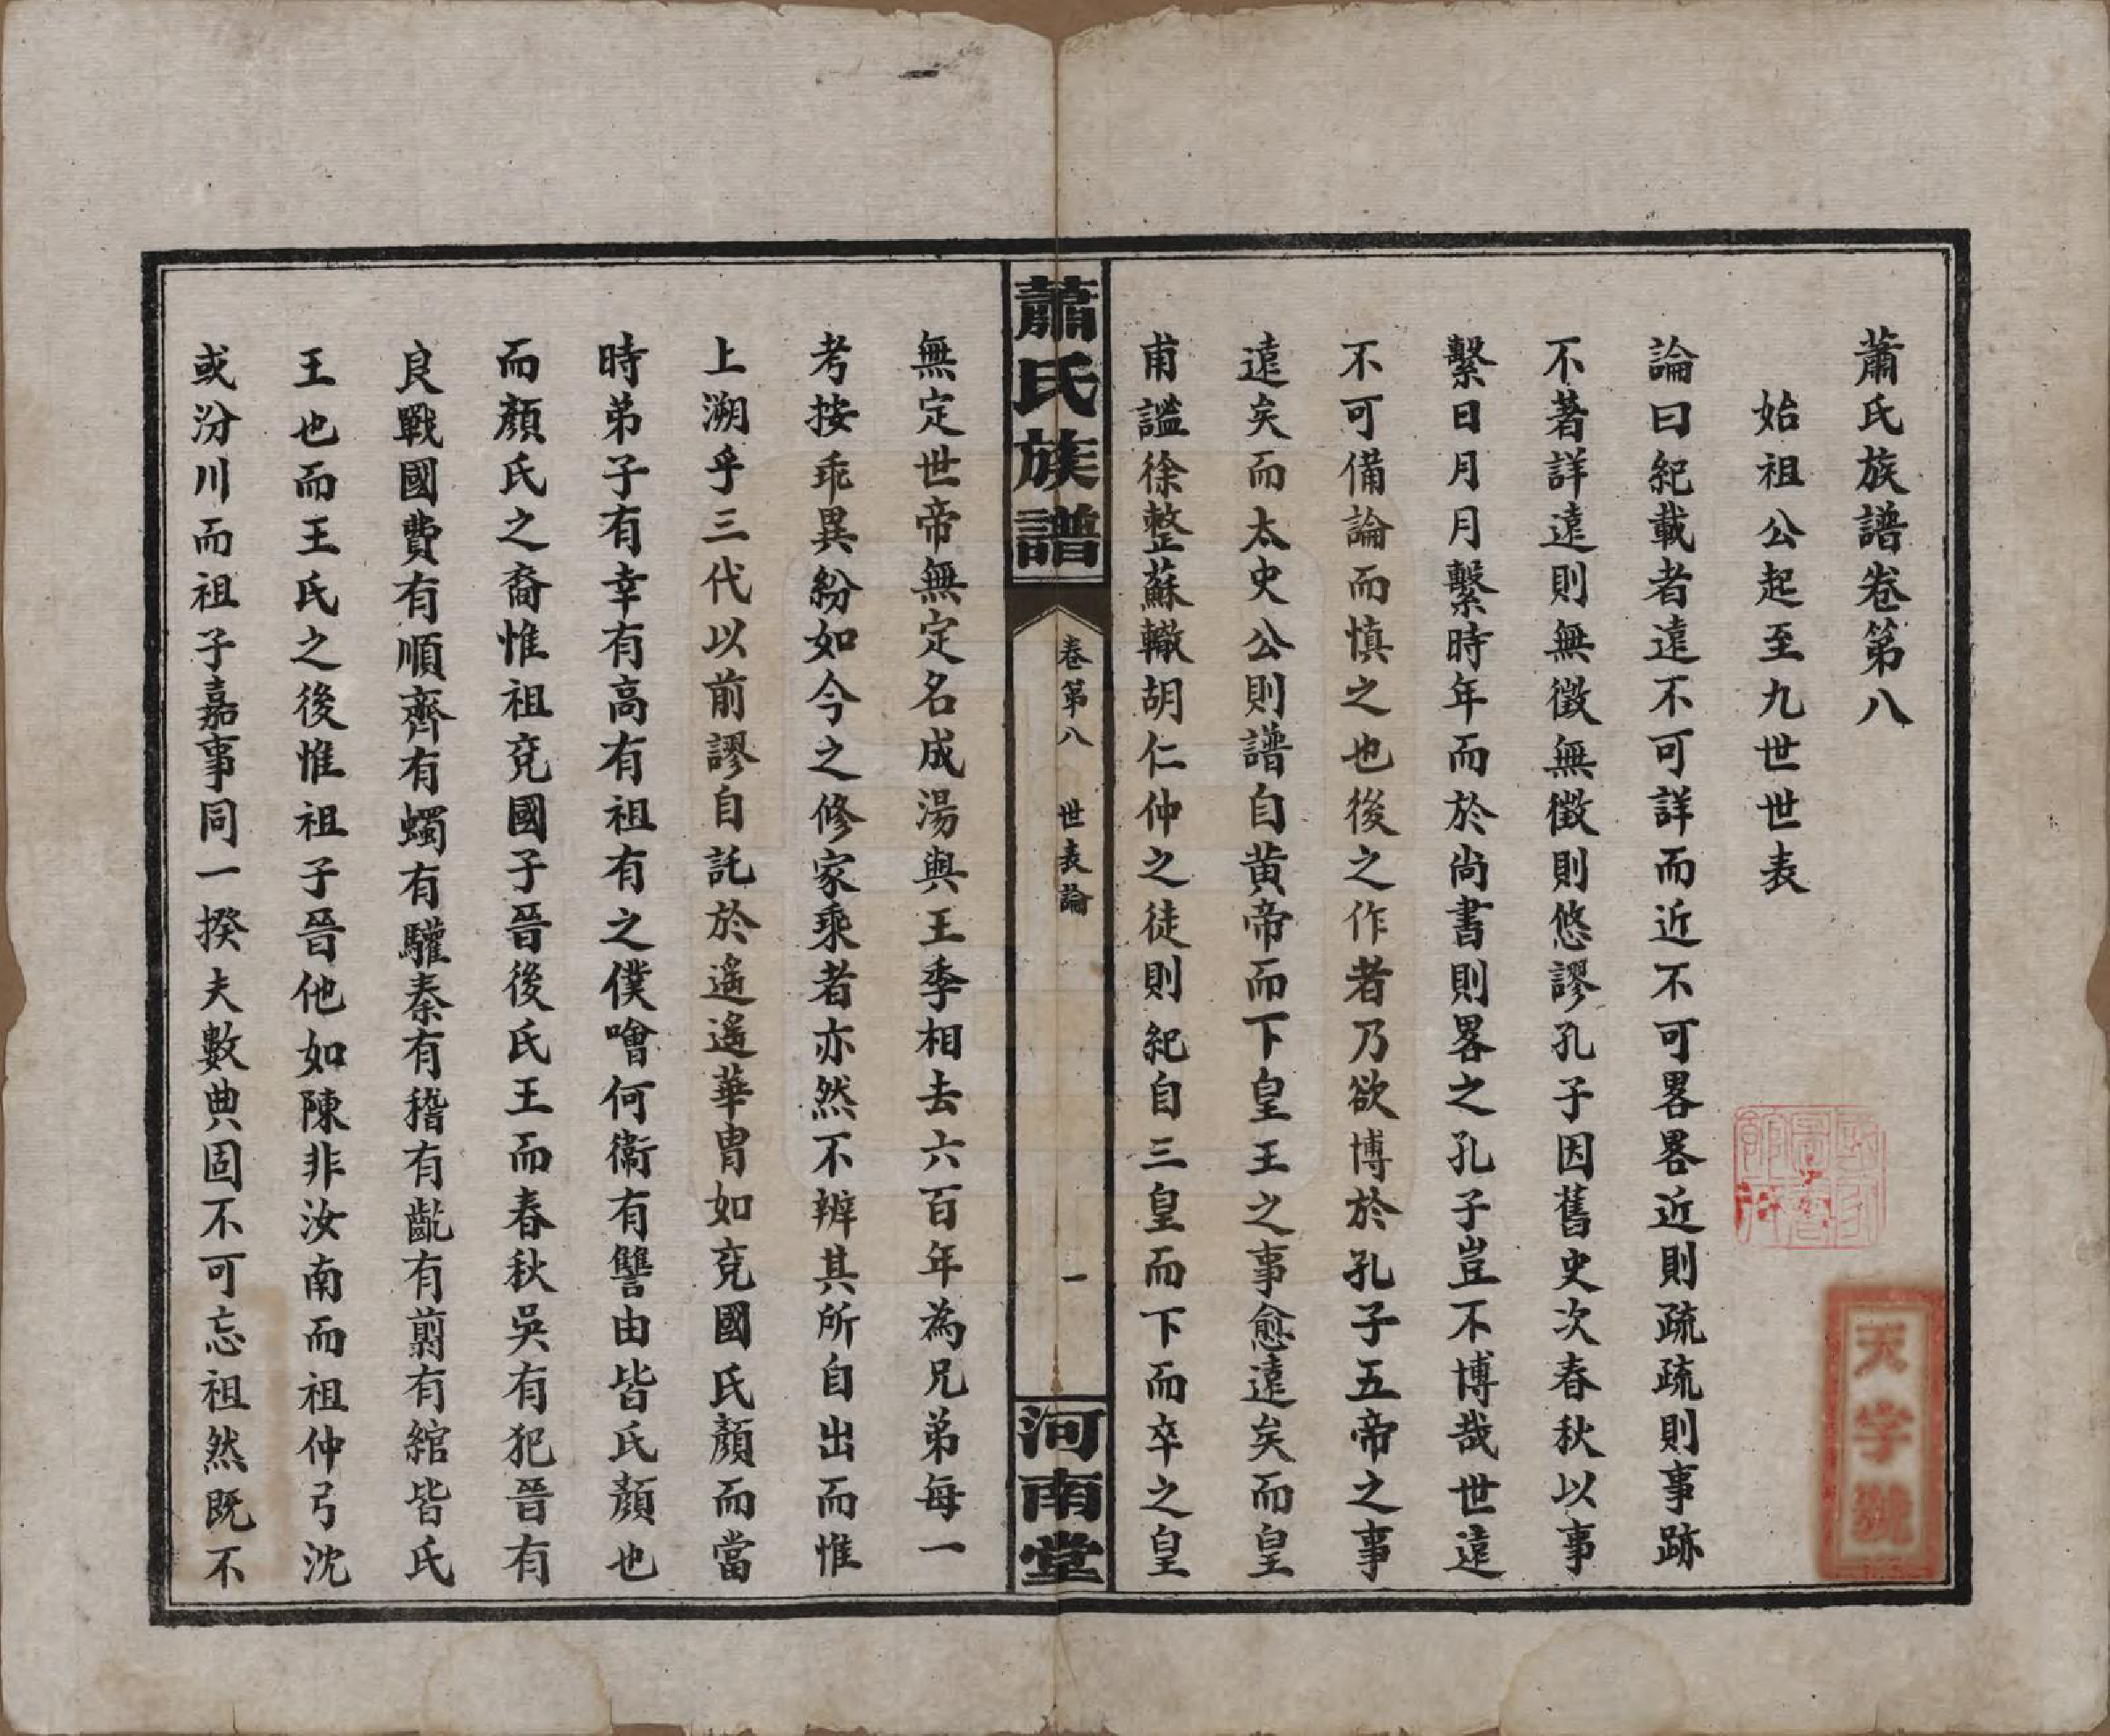 蕭氏族譜卷第八
始祖公起至九世世表
論曰紀載者遠不可詳而近不可畧畧近則疏疏則事跡
不著詳遠則無徵無徵則悠謬孔子因舊史次春秋以事
繫日月月繫時年而於尚書則畧之孔子豈不博哉世遠
不可備論而慎之也後之作者乃欲博於孔子五帝之事
遠矣而太史公則譜自黄帝而下皇王之事愈遠矣而皇
甫謐徐整蘇轍胡仁仲之徒則紀自三皇而下而卒之皇
蕭氏族譜
卷第八 世表論
一
河南堂
無定世帝無定名成湯與王季相去六百年為兄弟每一
考按乖異紛如今之修家乘者亦然不辨其所自出而惟
上溯乎三代以前謬自託於遙遙華胄如兗國氏顏而當
時弟子有幸有高有祖有之僕噲何衞有讐由皆氏顏也
而顏氏之裔惟祖兗國子晉後氏王而春秋吳有犯晉有
良戰國費有順齊有蠋有驩秦有稽有齕有翦有綰皆氏
王也而王氏之後惟祖子晉他如陳非汝南而祖仲弓沈
或汾川而祖子嘉事同一揆夫數典固不可忘祖然既不
天字號